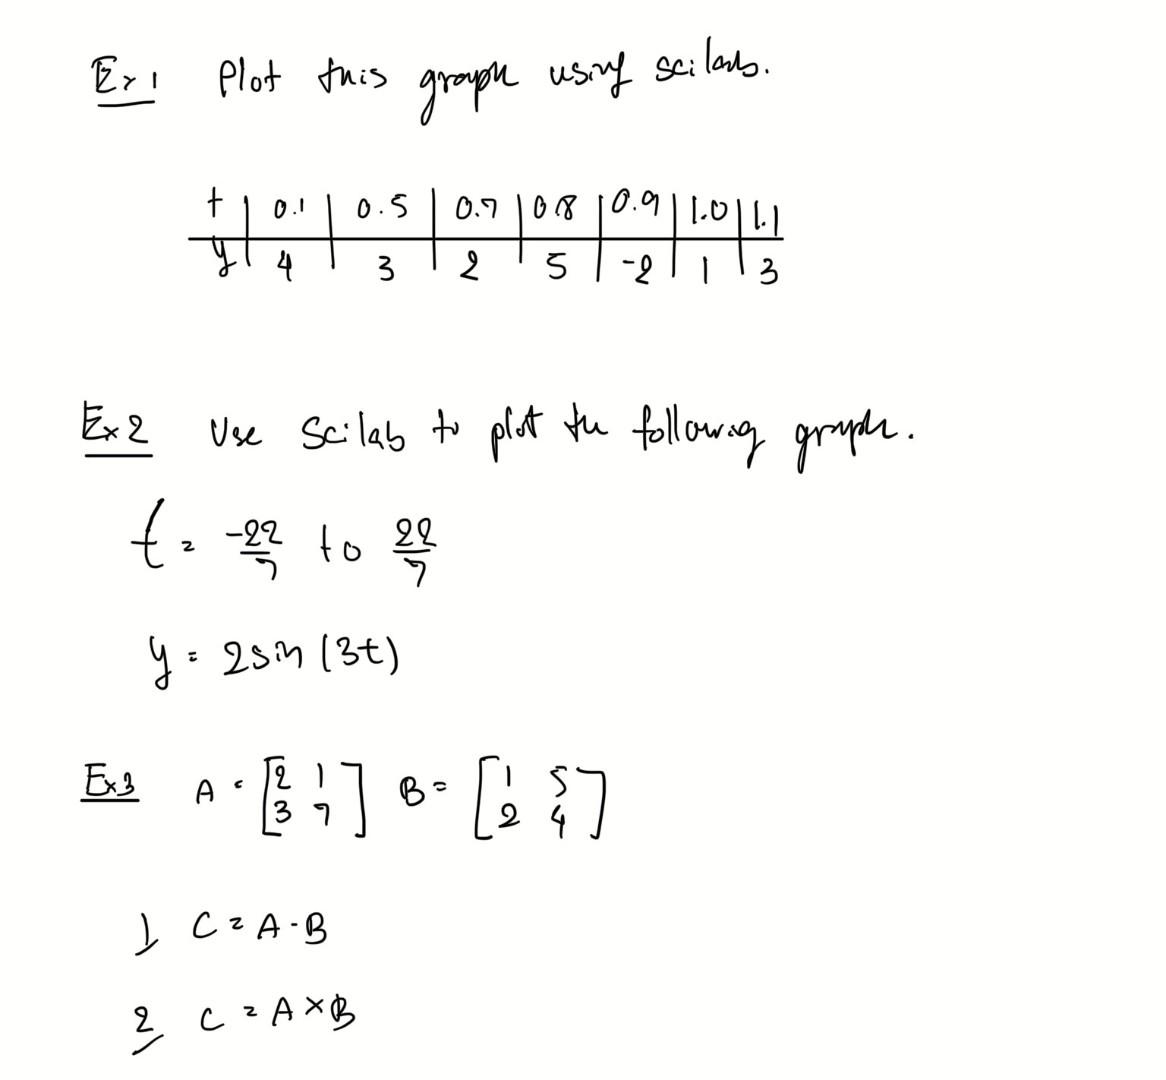 Ex1 Plot this graph using scilab.
t | 0.1 | 0.5 | 0.7 | 0.8 | 0.9 | 1.0 | 1.1
y | 4 | 3 | 2 | 5 | -2 | 1 | 3
Ex2 Use Scilab to plot the following graph.
t = -22/7 to 22/7
y = 2sin(3t)
Ex3 A = [2 1; 3 7] B = [1 5; 2 4]
1 C = A - B
2 C = A × B